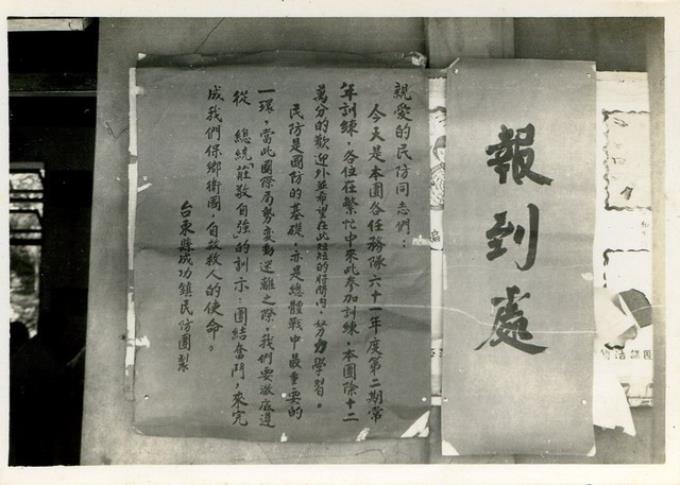 報到處
親愛的民防同志們：
今天是本團各任務隊六十一年度第二期常
年訓練，各位在繁忙中來此參加訓練，本團除十二
萬分的歡迎外並希望在此短短的時間內，努力學習。
民防是國防的基礎；亦是總體戰中最重要的
一環，當此國際局勢變動迷離之際，我們要澈底遵
從　總統「莊敬自強」的訓示：團結奮鬥，來完
成我們保鄉衛國，自救救人的使命。
台東縣成功鎮民防團製